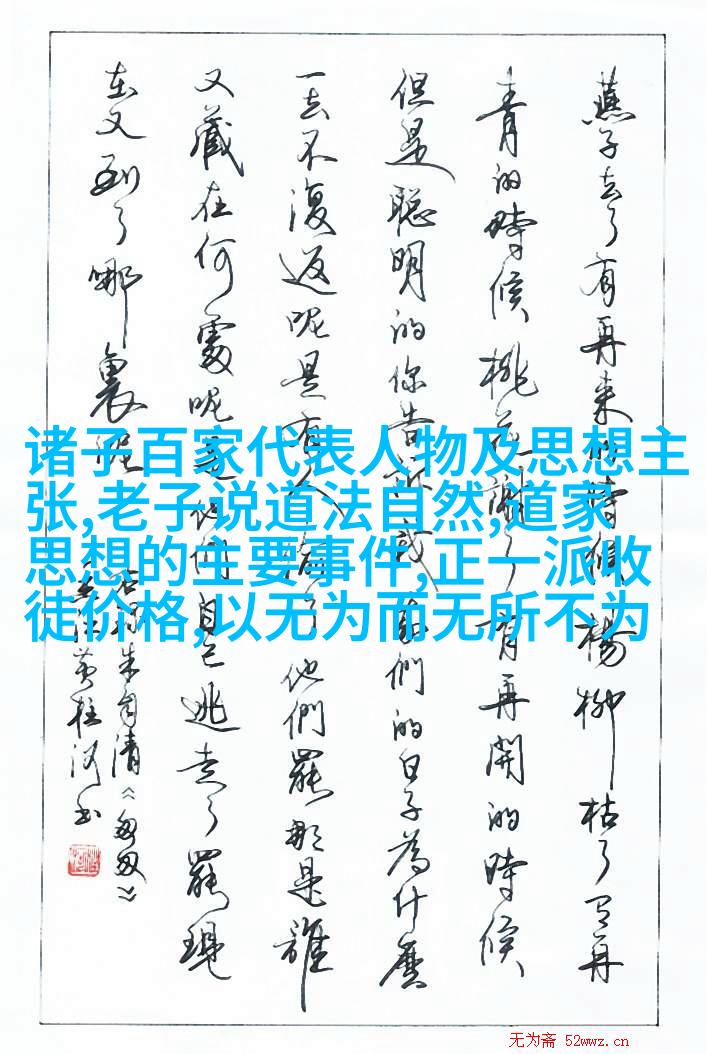 燕子去了有再来的時候楊柳枯了有再
青的時候桃花謝了有再開的時候
但是聪明的你告訴我我們的日子為什麼
一去不復返呢是有人偷了他們罷那是誰
又藏在何處呢是他們自己逃走了罷現
在又到了哪裏呢
朱自清《匆匆》
黄桂河书
诸子百家代表人物及思想主
张,老子说道法自然,道家
思想的主要事件,正一派收
徒价格,以无为而无所不为
无为斋 52wwz.cn